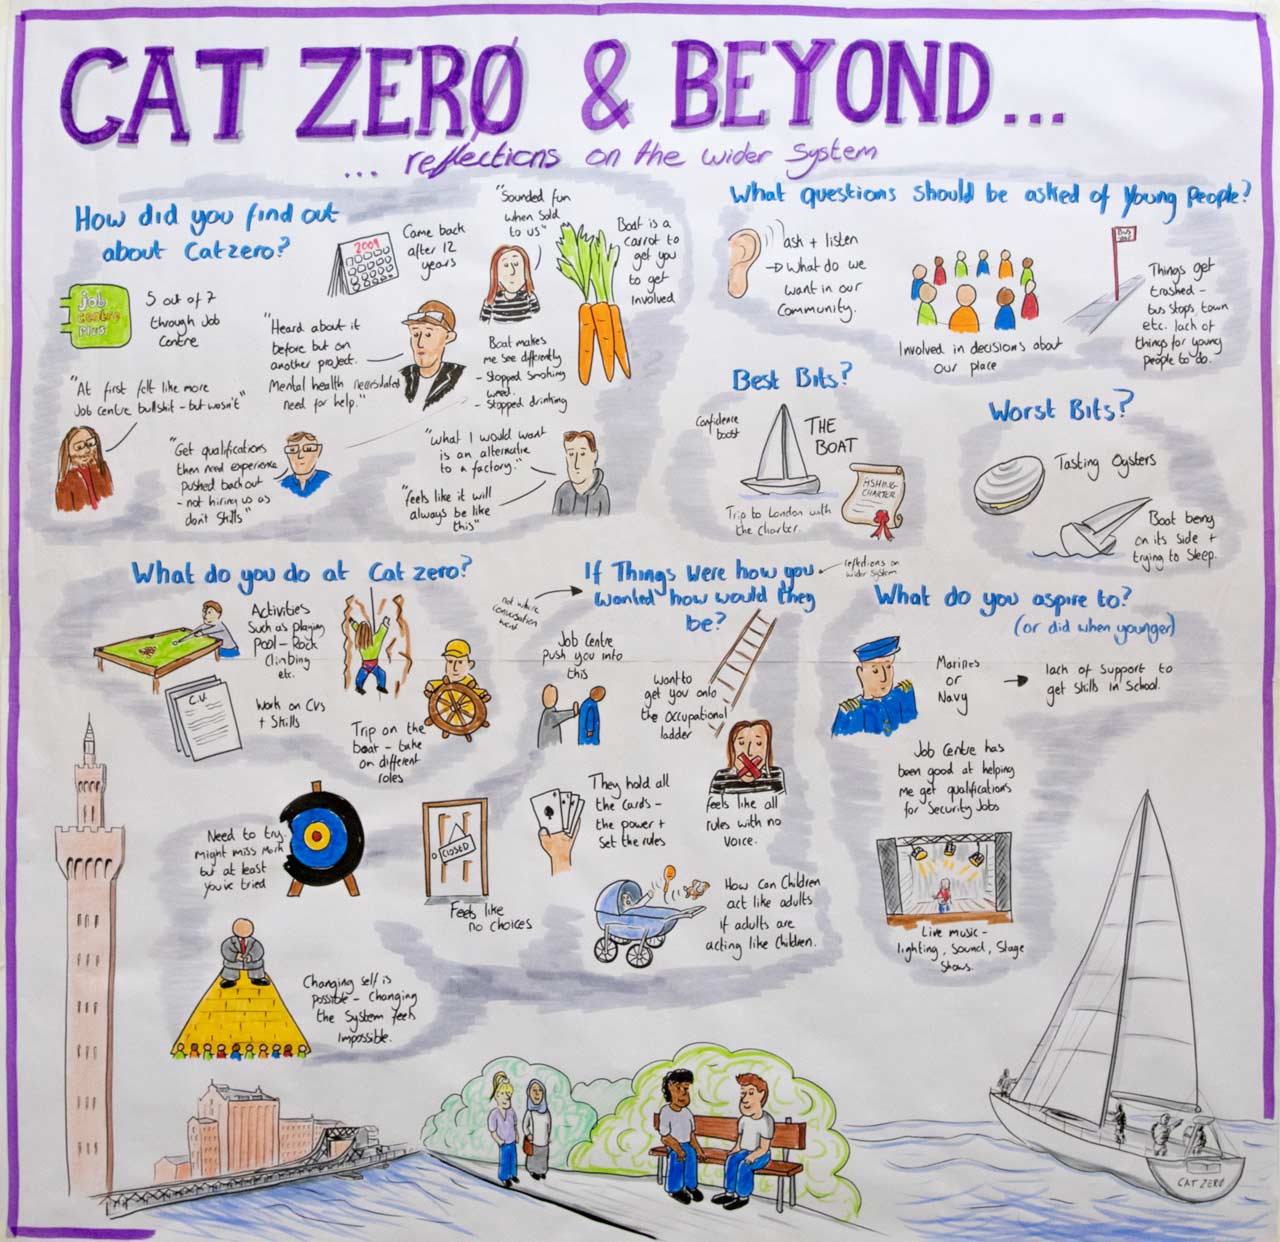 CAT ZERØ & BEYOND...
... reflections on the wider system
How did you find out
about Catzero?
job
centre
plus
5 out of 7
through Job
Centre
2009
Came back
after 12
years
"Sounded fun
when sold
to us"
Boat is a
carrot to
get you
to get
involved
"Heard about it
before but on
another project.
Mental health necessitated
need for help."
Boat makes
me see differently
- Stopped smoking
weed.
- Stopped drinking
"At first felt like more
Job centre bullshit - but wasn't"
"Get qualifications
then need experience
pushed back out
- not hiring us as
don't Skills"
"What I would want
is an alternative
to a factory."
"feels like it will
always be like
this"
What questions should be asked of Young People?
ask + listen
→ What do we
want in our
Community.
Involved in decisions about
our place
Things get
trashed -
bus stops, town
etc. lack of
things for young
people to do.
Best Bits?
Confidence
boost
THE
BOAT
FISHING
CHARTER
Trip to London with
the charter.
Worst Bits?
Tasting Oysters
Boat being
on its side +
trying to sleep.
What do you do at Catzero?
Activities
Such as playing
Pool - Rock
Climbing
etc.
C.V.
Work on CVs
+ Skills
Trip on the
boat - take
on different
roles
Need to try.
might miss mark
but at least
you've tried
CLOSED
Feels like
no choices
Changing self is
possible - Changing
the System feels
impossible.
not where
conversation
went
If Things were how you
wanted how would they
be?
reflections on
wider system
Job Centre
push you into
this
Want to
get you onto
the occupational
ladder
They hold all
the cards -
the power +
Set the rules
feels like all
rules with no
voice.
How can Children
act like adults
if adults are
acting like children.
What do you aspire to?
(or did when younger)
Marines
or
Navy
→ lack of support to
get skills in School.
Job Centre has
been good at helping
me get qualifications
for Security Jobs
Live music -
lighting, sound, stage
shows.
CAT ZERØ